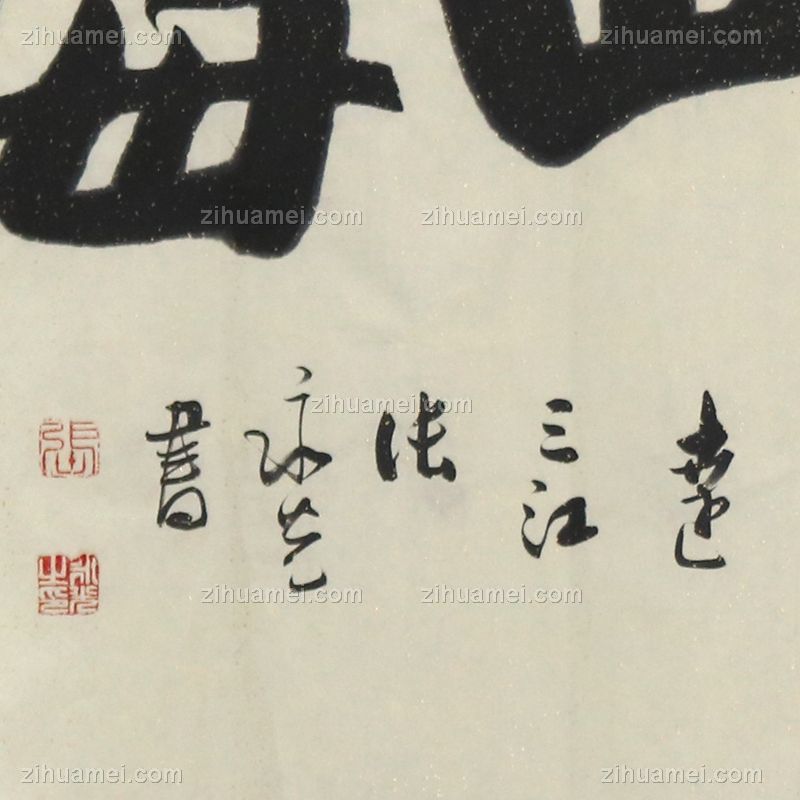 zihuamei.com
zihuamei.com
zihuamei.com
zihuamei.com
三江
张
永光
書
張
永光之印
zihuamei.com
zihuamei.com
zihuamei.com
zihuamei.com
zihuamei.com